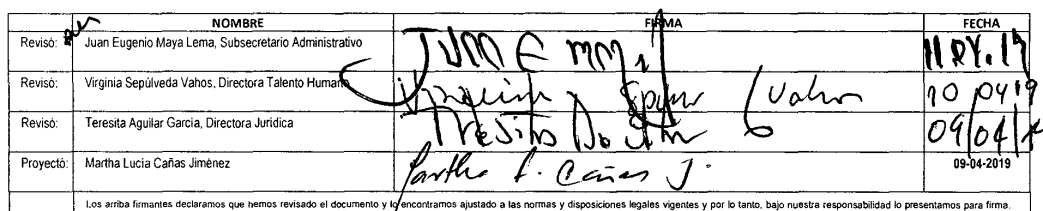 NOMBRE FIRMA FECHA
Revisó: Juan Eugenio Maya Lema, Subsecretario Administrativo
Revisó: Virginia Sepúlveda Vahos, Directora Talento Humano 10 04 19
Revisó: Teresita Aguilar García, Directora Jurídica 09/04/
Proyectó: Martha Lucía Cañas Jiménez Martha L. Cañas J. 09-04-2019
Los arriba firmantes declaramos que hemos revisado el documento y lo encontramos ajustado a las normas y disposiciones legales vigentes y por lo tanto, bajo nuestra responsabilidad lo presentamos para firma.